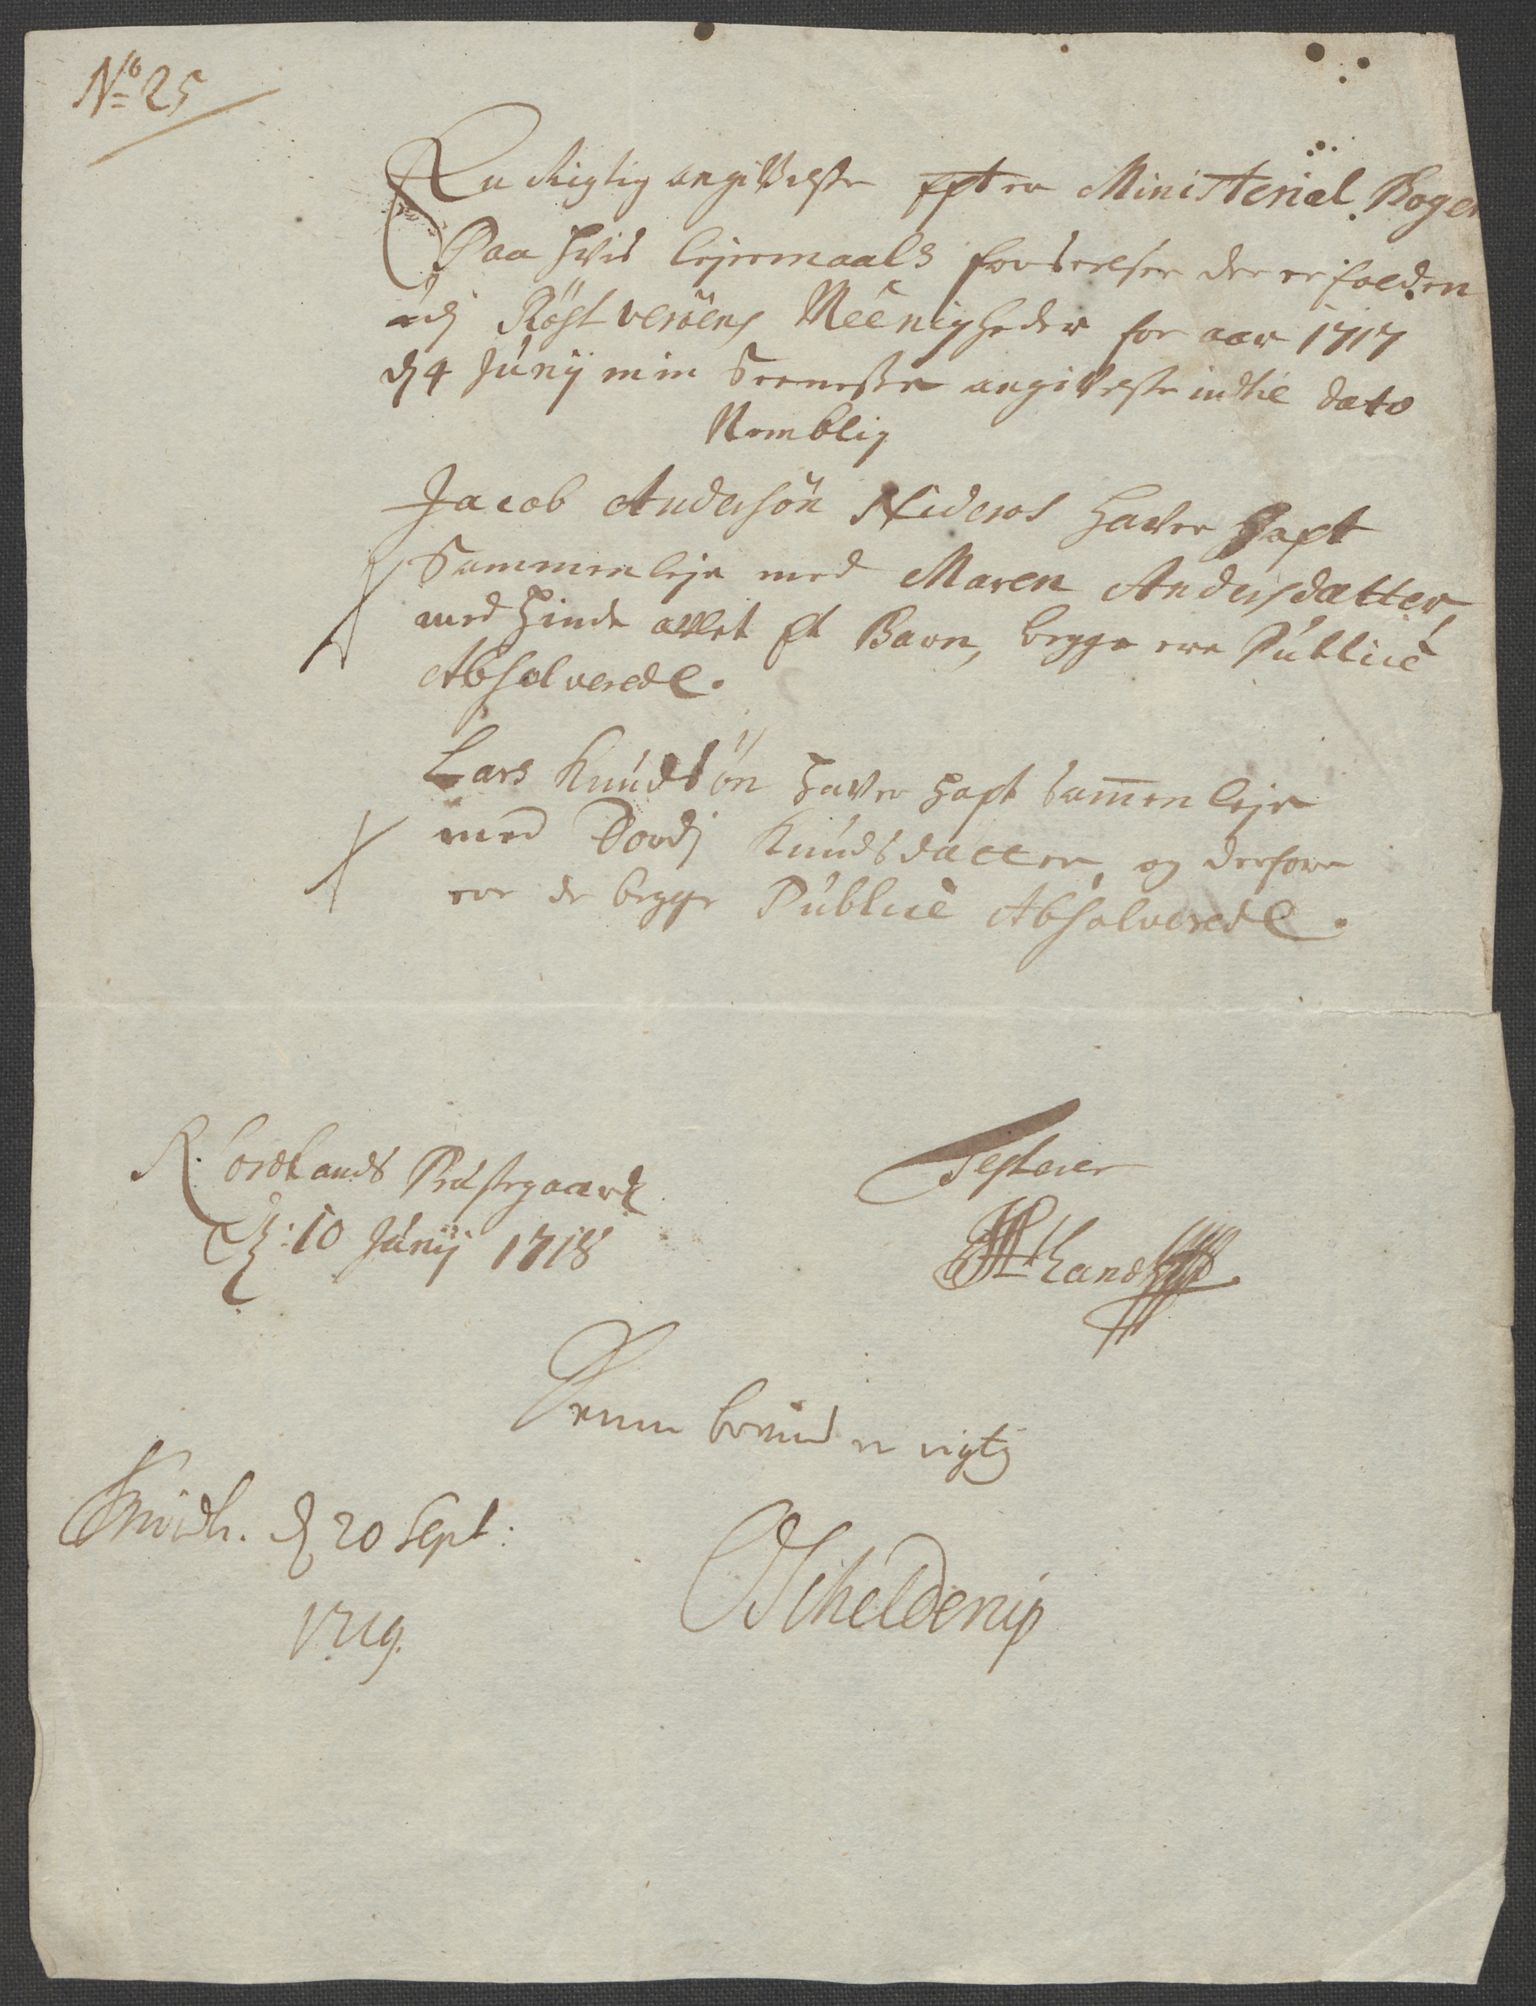 No 25
En Rigtig angivelse efter Ministerial Bogen
Paa hvis lejermaals forseelser der er falden
udj Røst verøens Meenigheder for aar 1717
dj 4 Junij min Seeneste angivelse indtil dato
Nemblig
Jacob Andersøn Nideros haver haft
Sammenleje med Maren Andersdatter,
med hinde avlet et Barn, begge ere Publicè
Absolverede.
Lars Knudsøn haver haft sammenleje
med Dordj Knudsdatter, og derfore
ere de begge Publicè Absolverede.
Præstegaard
d: 10 Junij 1718
Testerer
Denne bevind er rigtig
Trondh. d 20 Sept:
1719.
OSchelderup